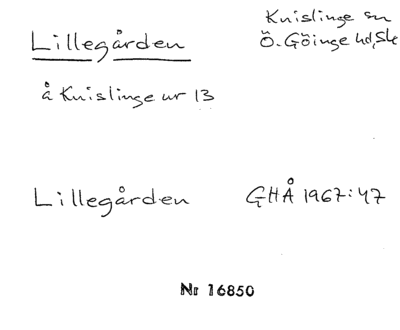 Lillegården
Knislinge sn
Ö. Göinge hd, Sk
å Knislinge nr 13
Lillegården GHÅ 1967:47
Nr 16850